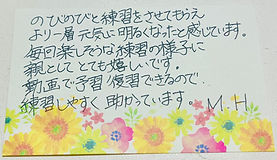 のびのびと練習をさせてもらえ
より一層元気に明るくなったと感じています。
毎日楽しそうな練習の様子に
親としてとても嬉しいです。
動画で予習復習できるので
練習しやすく助かっています。 M.H